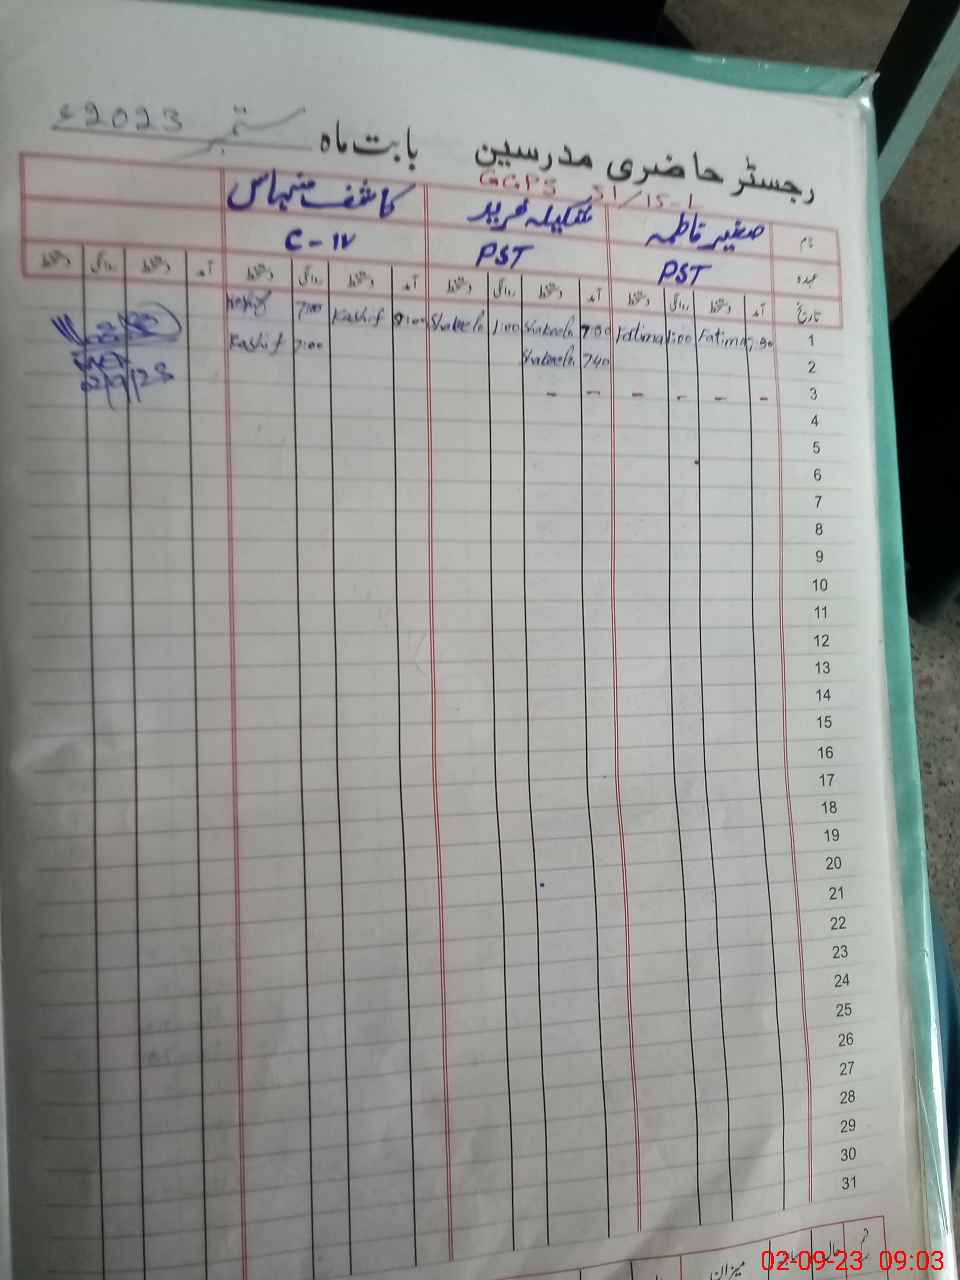 رجسٹر حاضری مدرسین بابت ماہ ستمبر 2023ء
GGPS 51/15-L
نام صغیر فاطمہ شکیلہ فرید کاشف منہاس
عہدہ PST PST C-IV
تاریخ آمد دستخط روانگی دستخط آمد دستخط روانگی دستخط آمد دستخط روانگی دستخط آمد دستخط روانگی دستخط
1 7:30 Fatima 1:00 Fatima 7:00 Shakeela 1:00 Shakeela Kashif 7:00 Kashif
2 7:40 Shakeela 7:00 Kashif
2/9/23
3 - - - - - -
4
5
6
7
8
9
10
11
12
13
14
15
16
17
18
19
20
21
22
23
24
25
26
27
28
29
30
31
میزان
02-09-23 09:03